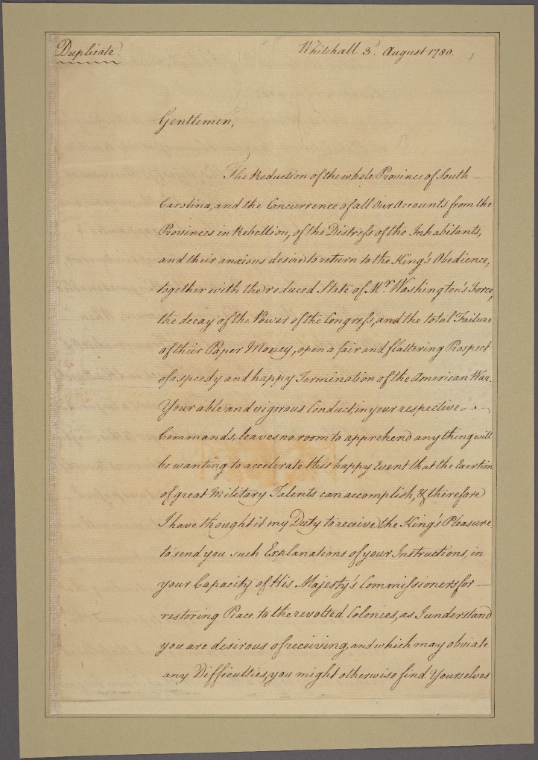 Duplicate
Whitehall 3d. August 1780.
Gentlemen,
The Reduction of the whole Province of South
Carolina, and the Concurrence of all our Accounts from the
Provinces in Rebellion, of the Distress of the Inhabitants,
and their anxious desire to return to the King's Obedience,
together with the reduced State of Mr. Washington's Force,
the decay of the Power of the Congress, and the total Failure
of their Paper Money, open a fair and flattering Prospect
of a speedy and happy Termination of the American War.
Your able and vigorous Conduct, in your respective
Commands, leaves no room to apprehend any thing will
be wanting to accelerate this happy Event that the Exertion
of great Military Talents can accomplish, & therefore
I have thought it my Duty to receive the King's Pleasure
to send you such Explanations of your Instructions in
your Capacity of His Majesty's Commissioners for
restoring Peace to the revolted Colonies, as I understand
you are desirous of receiving, and which may obviate
any Difficulties, you might otherwise find Yourselves